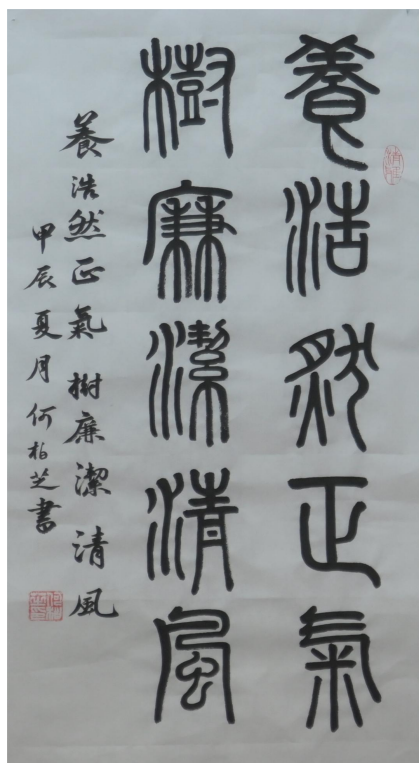 養浩然正氣
樹廉潔清風
養浩然正氣樹廉潔清風
甲辰夏月何柏芝書